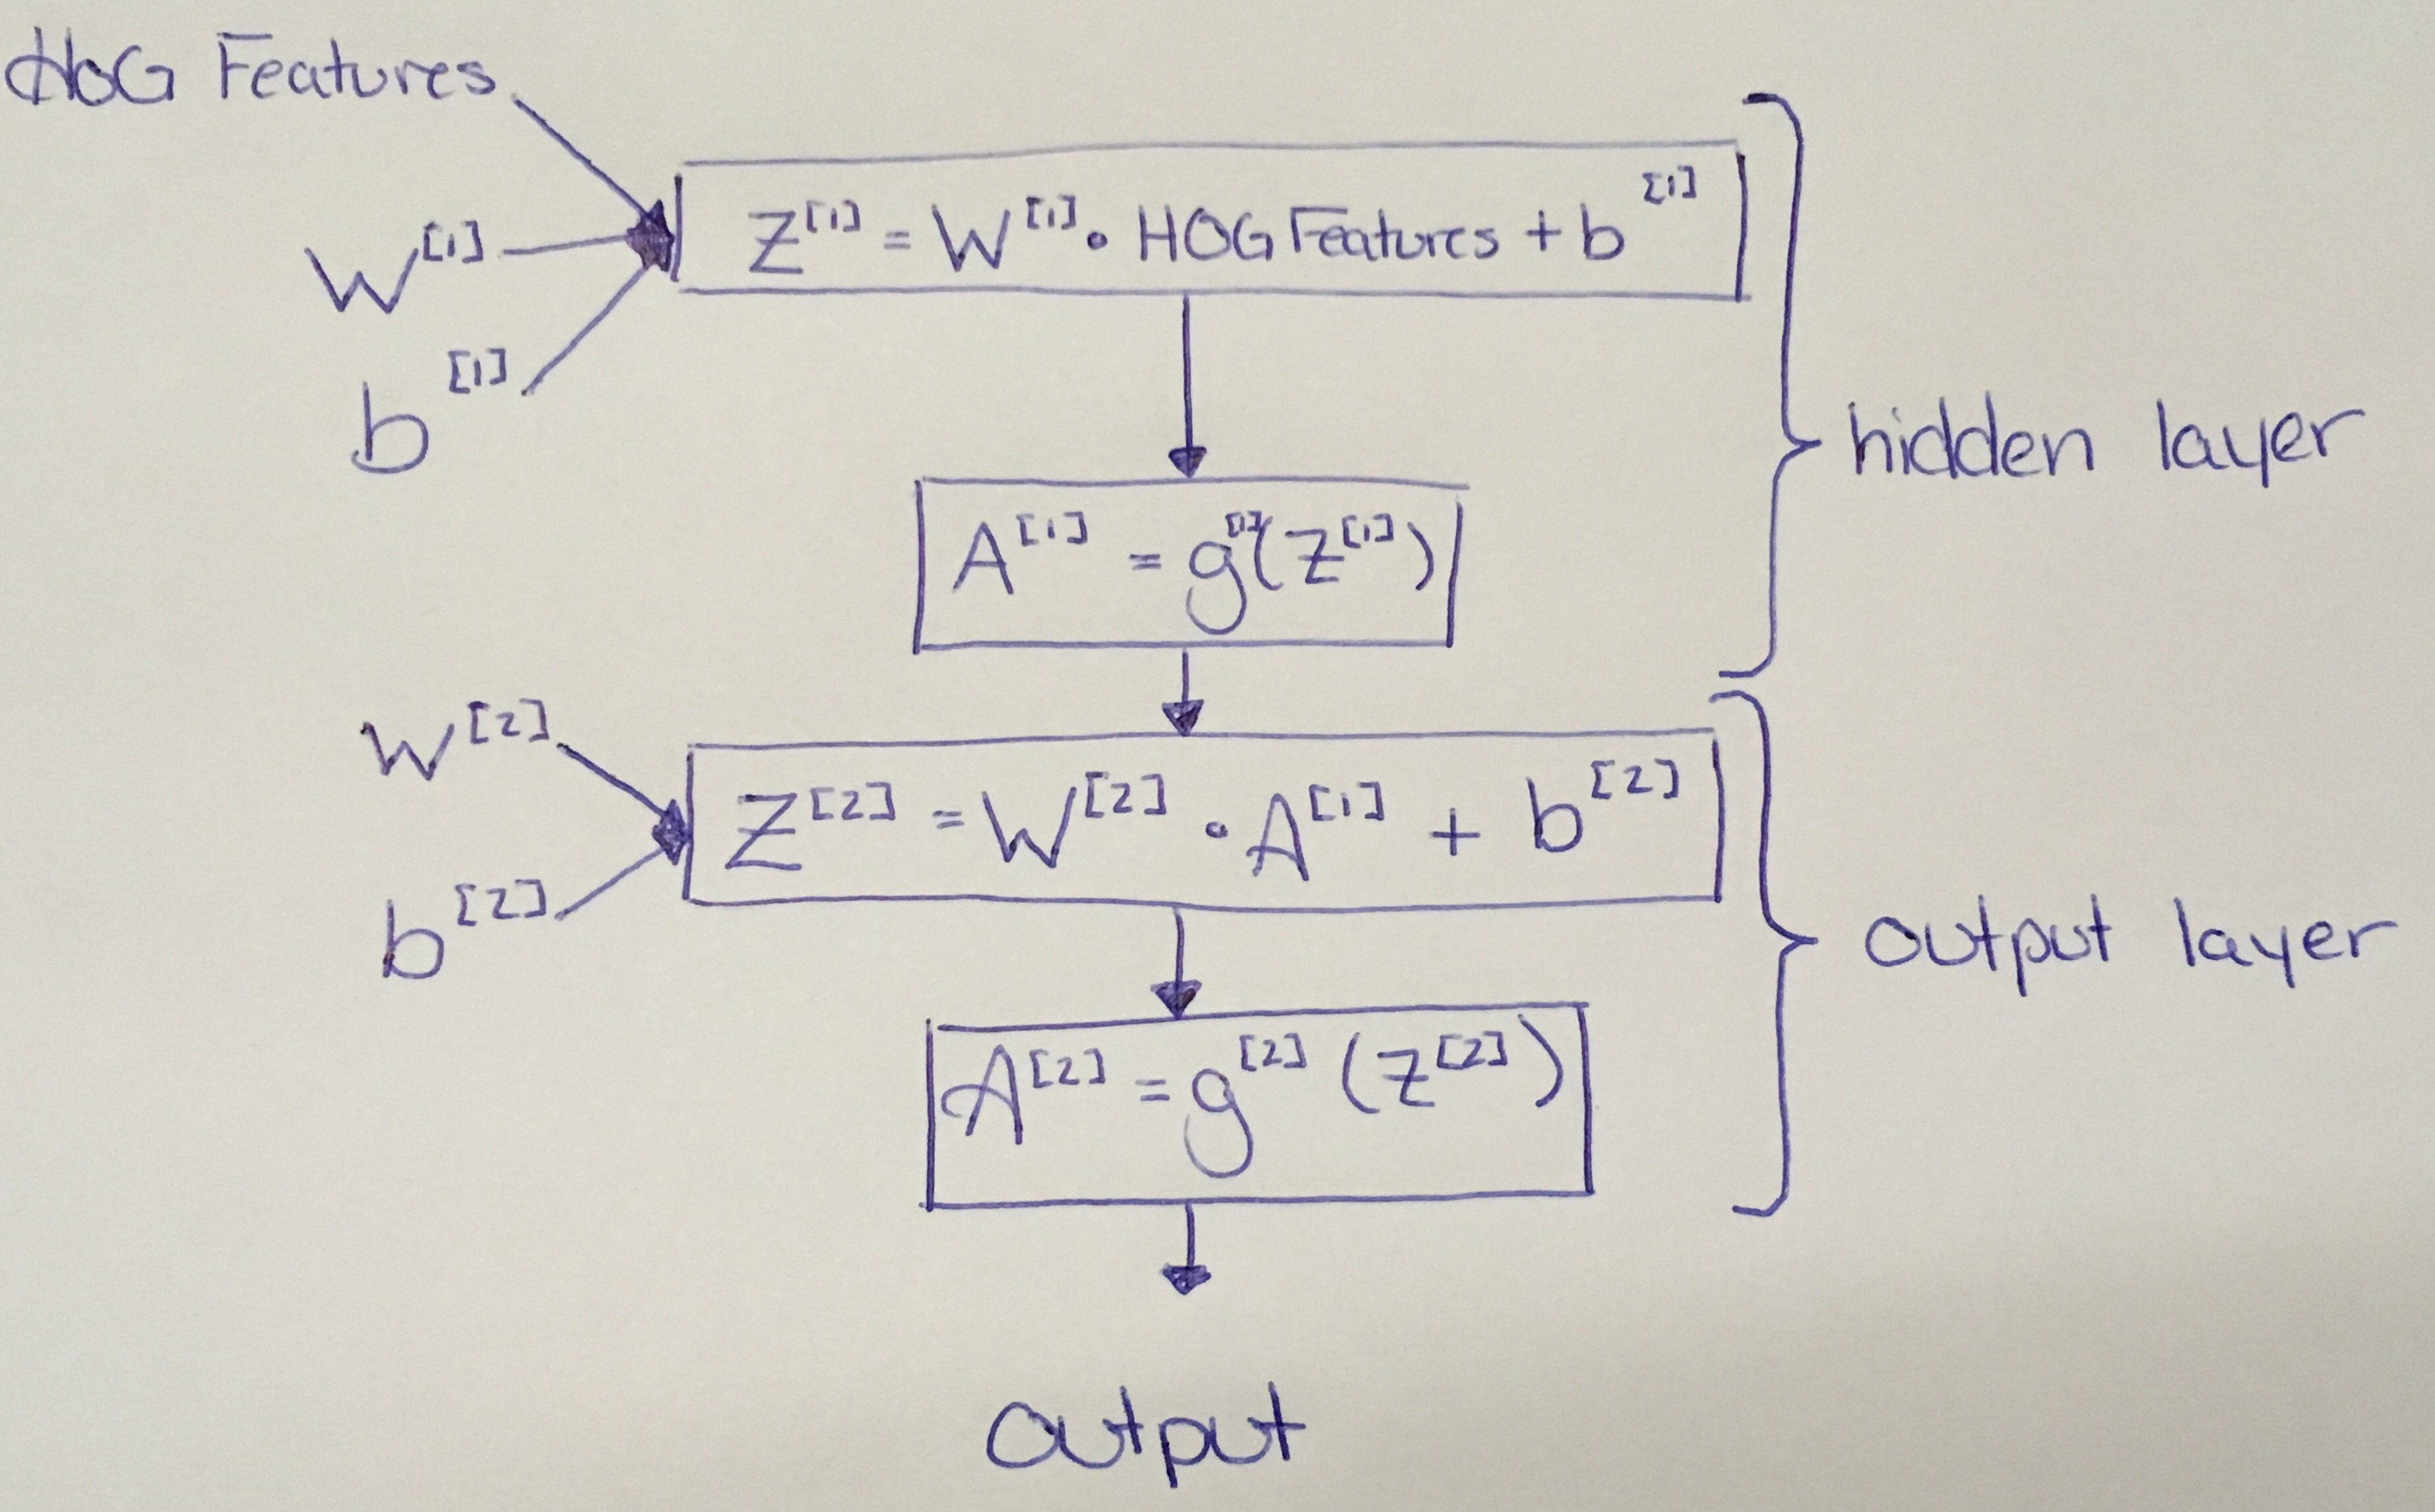 HOG Features
W[1]
b[1]
Z[1] = W[1] • HOG Features + b[1]
A[1] = g[1](Z[1])
hidden layer
W[2]
b[2]
Z[2] = W[2] • A[1] + b[2]
A[2] = g[2] (Z[2])
output layer
Output